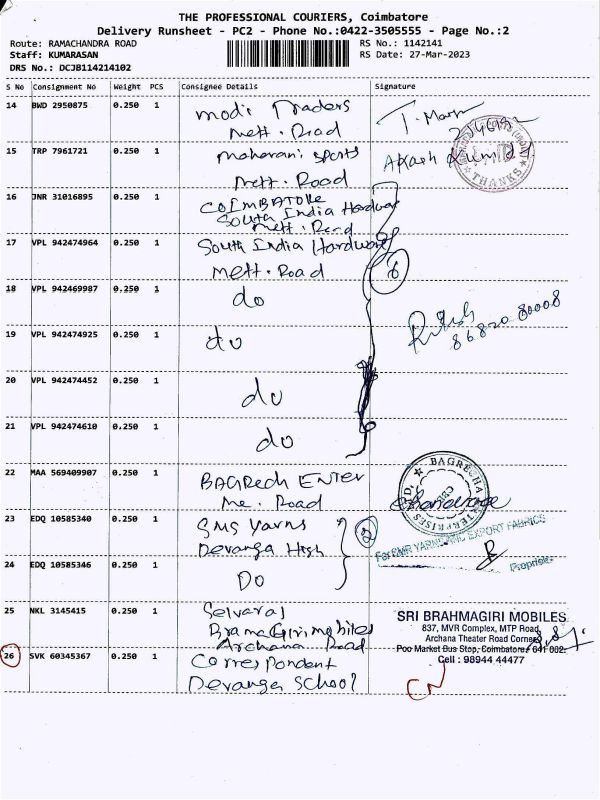 THE PROFESSIONAL COURIERS, Coimbatore
Delivery Runsheet - PC2 - Phone No.:0422-3505555 - Page No.:2
Route: RAMACHANDRA ROAD RS No.: 1142141
Staff: KUMARASAN RS Date: 27-Mar-2023
DRS No.: DCJB114214102
S No Consignment No Weight PCS Consignee Details Signature
14 BWD 2950875 0.250 1 modi Traders
Mett. Road
15 TRP 7961721 0.250 1 maharani sports
Mett. Road
Akash
THANKS
16 JNR 31016895 0.250 1 COIMBATORE
South India Hardware
Mett. Road
17 VPL 942474964 0.250 1 South India Hardware
Mett. Road
6
18 VPL 942469987 0.250 1 do
19 VPL 942474925 0.250 1 do
86820 80008
20 VPL 942474452 0.250 1 do
21 VPL 942474610 0.250 1 do
22 MAA 569409907 0.250 1 BAGRech ENTER
Me. Road
BAGRECHA ENTERPRISES
23 EDQ 10585340 0.250 1 SMS Yarns
Devanga High
2
EXPORT FABRICS
24 EDQ 10585346 0.250 1 Do
25 NKL 3145415 0.250 1 Selvaraj
Archana Road
SRI BRAHMAGIRI MOBILES
837, MVR Complex, MTP Road,
Archana Theater Road Corner
Poo Market Bus Stop, Coimbatore - 641 002.
Cell : 98944 44477
26 SVK 60345367 0.250 1 Correspondent
Devanga School
CN